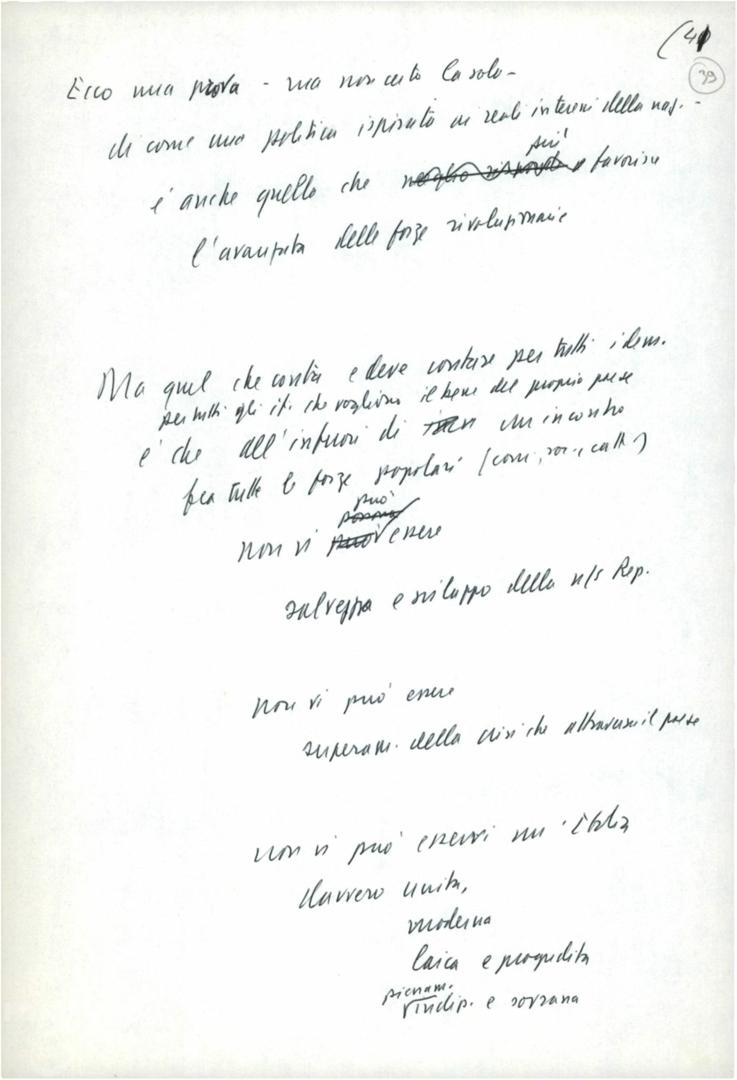 (41
39
Ecco una prova - ma non certo la sola -
di come una politica ispirata ai reali interessi della naz. -
più
è anche quella che favorisce
l'avanzata delle forze rivoluzionarie
Ma quel che conta e deve contare per tutti i dem.
per tutti gli it. che vogliono il bene del proprio paese
è che all'infuori di un incontro
fra tutte le forze popolari (com., soc., catt.)
può
non vi essere
salvezza e sviluppo della n/s Rep.
non vi può essere
superam. della crisi che attraversa il paese
non vi può esservi un'Italia
davvero unita,
moderna
laica e progredita
pienam.
indip. e sovrana